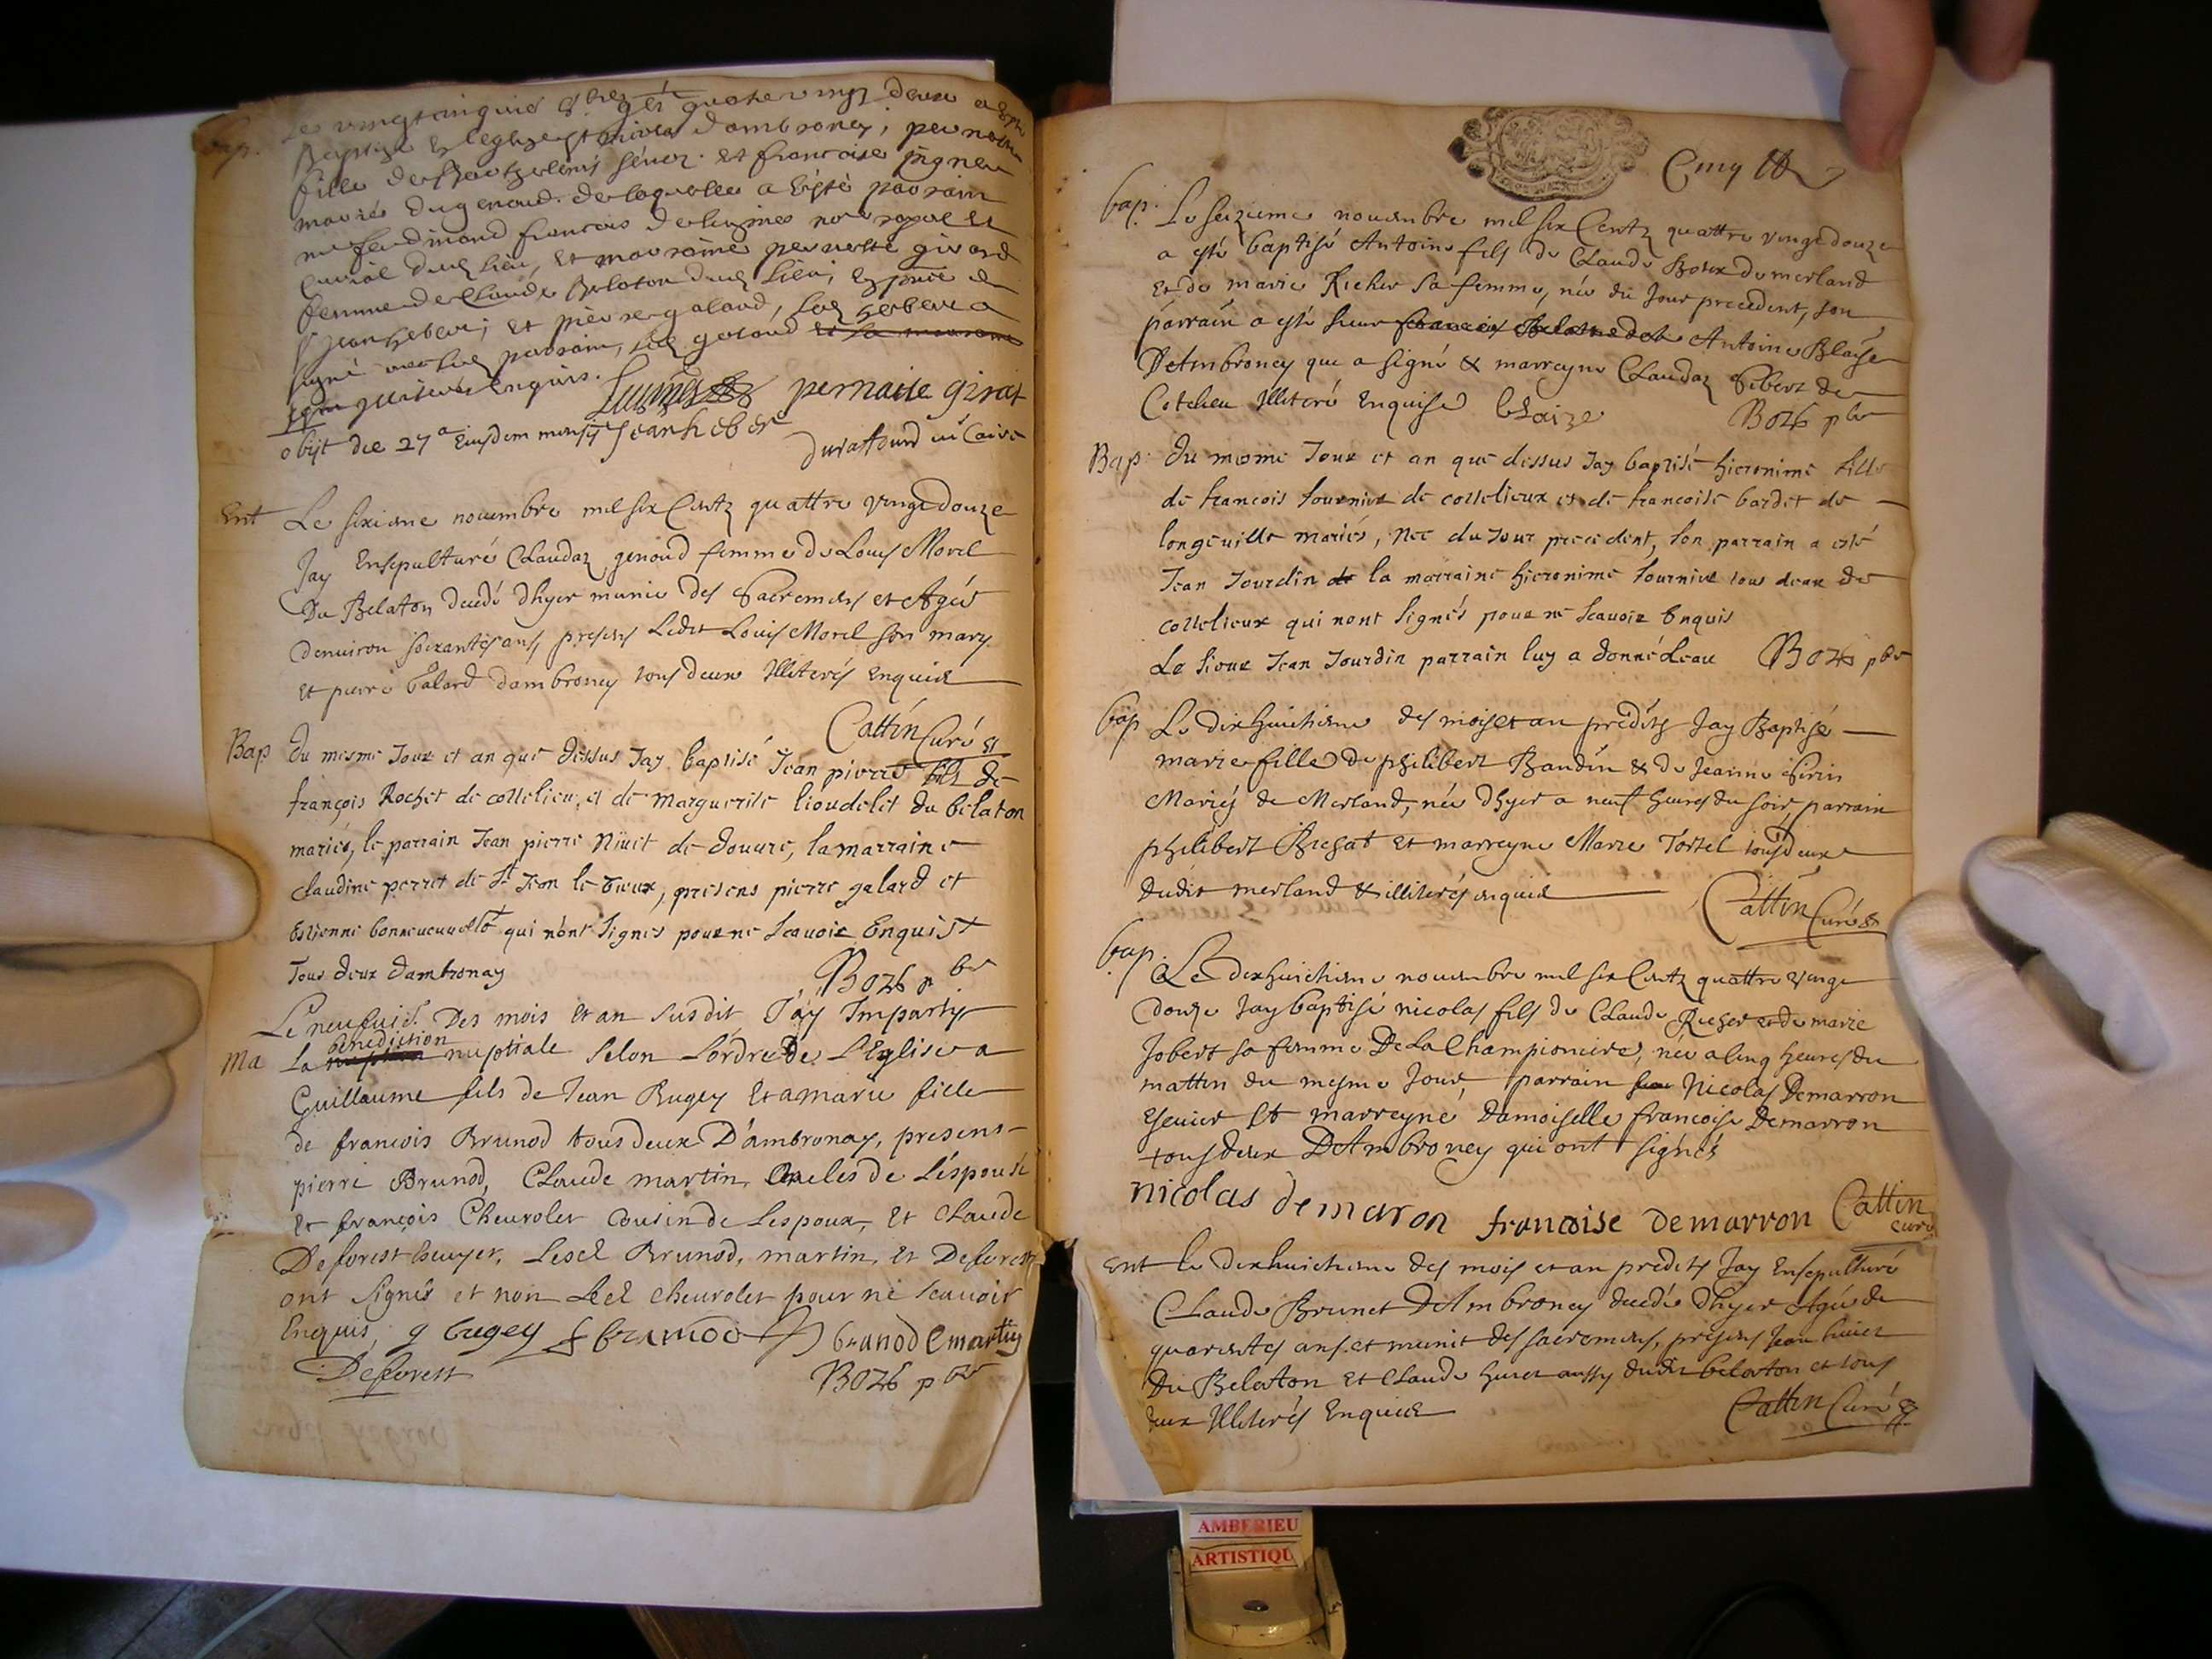 bap.
Le vingtcinquie 8.bre 1692 quatre vingt deux a esté
Baptizé En leglise dambroney, pernette
fille de genetz et francoise pigneu
mariés dugenoud. de laquelle a esté parrain
francois notre royal et
curial dud lieu, et marraine pernette girard
femme de Claude Belaton dud lieu, En pnce de
Sr Jean heber; et pierre galand, led heber a
signé avec led parrain, led galand et la marraine
enquis.
pernaite girat
obijt die 27a Eiusdem mensis Jean heber
duraffourd vicaire
Ent Le sixiesme nouembre mil six Centz quattre vingt douze
Jay Ensepulturé Claudaz genoud femme de Louys Morel
Du Belaton decedé dhyer munie des Sacremens et Agée
denuiron soixantes ans, presens Ledit Louis Morel son mary
et pierre Galard dambroney tous deux Illiterés Enquis
Cattin Curé
Bap du mesme Jour et an que dessus Jay baptisé Jean pierre fils de
françois Rochet de cottelieu, et de Marguerite lioudelet du bélaton
mariés, le parrain Jean pierre Niuet de douure, la marraine
claudine perret de St Jean le vieux, presens pierre galard et
Estienne bonneuuelle qui n'ont signes pour ne Scauoir Enquist
Tous deux dambronay
Bozo pbr
Le neufuie. Des mois et an susdit Jay Imparty
benediction
Ma La nuptiale Selon Lordre De L'Eglise a
Guillaume fils de Jean Bugey et a marie fille
de francois Brunod tous deux D'ambronay, presens
pierre Brunod, Claude martin, Oncles de L'éspouse
et françois Cheurolet Cousin de Lespoux, et Claude
Deforest Escuyer, Lesd Brunod, martin, et Deforest
ont Signés et non Led cheurolet pour ne scauoir
Enquis, g bugey f brunod P brunod C martin
Deforest
Bozo pbr
Cinq
bap. Le seizieme nouembre mil six Centz quattre vingt douze
a esté baptisé Antoine fils de Claude Roux de merland
et de marie Richer sa femme, née du Jour precedent, son
parrain a esté sieur Antoine Blaise
D'Ambroney que a signé & marreyne Claudaz Gibert de
Cotelieu Illiteré Enquise bLaize
Bozo pbr
Bap. du mesme Jour et an que dessus Jay baptisé hieronime fille
de francois fournier de cottelieux et de francoise bardet de
longeuille mariés, Neé du Jour precedent, son parrain a esté
Jean Jourdin la marraine hieronime fournier tous deux de
cottelieux qui nont signés pour ne scauoir Enquis
Le sieur Jean Jourdin parrain luy a donné Leau Bozo pbr
bap Le dix huictieme des mois et an prédits Jay Baptisé
marie fille de philibert Baudin & de Jeanne Perrin
Mariés de Merland, née dhyer a neuf heures du soir, parrain
philibert Buchat et marreyne Marie Tortel tous deux
dudit merland & illiterés enquis
Cattin Curé
bap. Le dixhuictieme nouembre mil six Centz quattre vingt
douze Jay baptisé nicolas fils de Claude Richer et de marie
Jobert sa femme De La Championiere, née a Cinq heures du
mattin du mesme Jour, parrain Nicolas Demarron
Escuier et marreyne Damoiselle francoise Demarron
tous deux D'Ambroney qui ont signés
nicolas demaron francoise demarron Cattin
curé
Ent le dixhuictieme des mois et an predits Jay Ensepulturé
Claude Brunet D'Ambroney decedé dhyer Agée de
quarantes ans et munit des sacremens, presens Jean
Du Belaton et Claude aussy dudit belaton et tous
deux Illiterés Enquis
Cattin Curé
AMBERIEU
ARTISTIQU